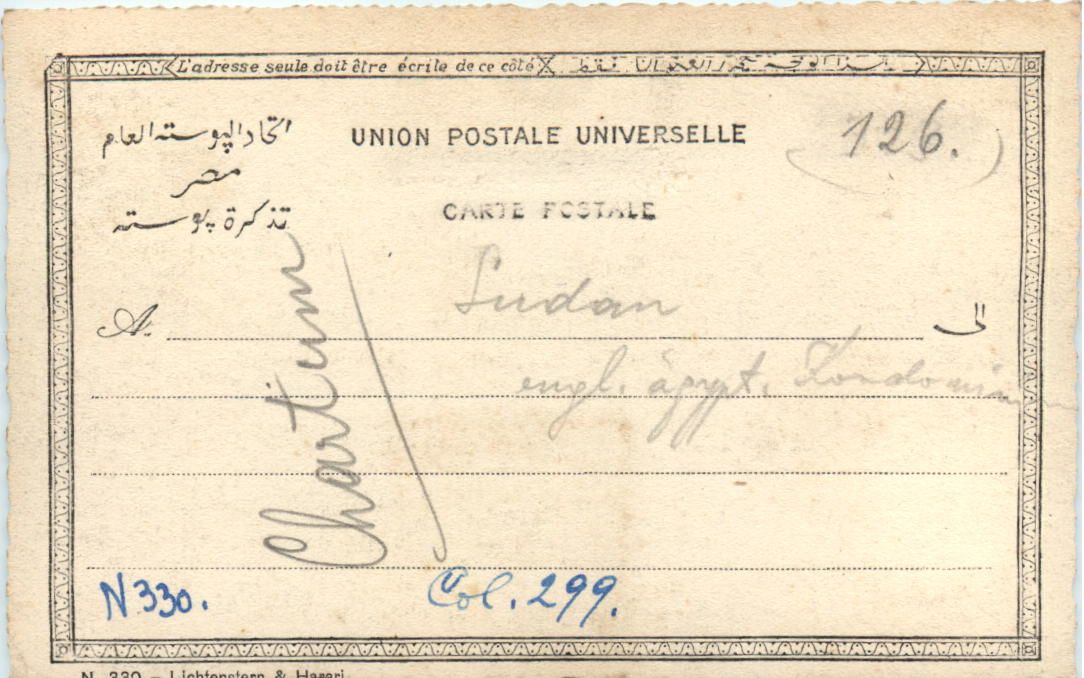 L'adresse seule doit être écrite de ce côté
اتحاد البوسته العام
UNION POSTALE UNIVERSELLE
126.
مصر
تذكرة بوسته
CARTE POSTALE
Chartum
Sudan
A.
الى
engl. ägypt. Kondomin
N 330.
Col. 299.
N. 330 – Lichtenstern & Harari